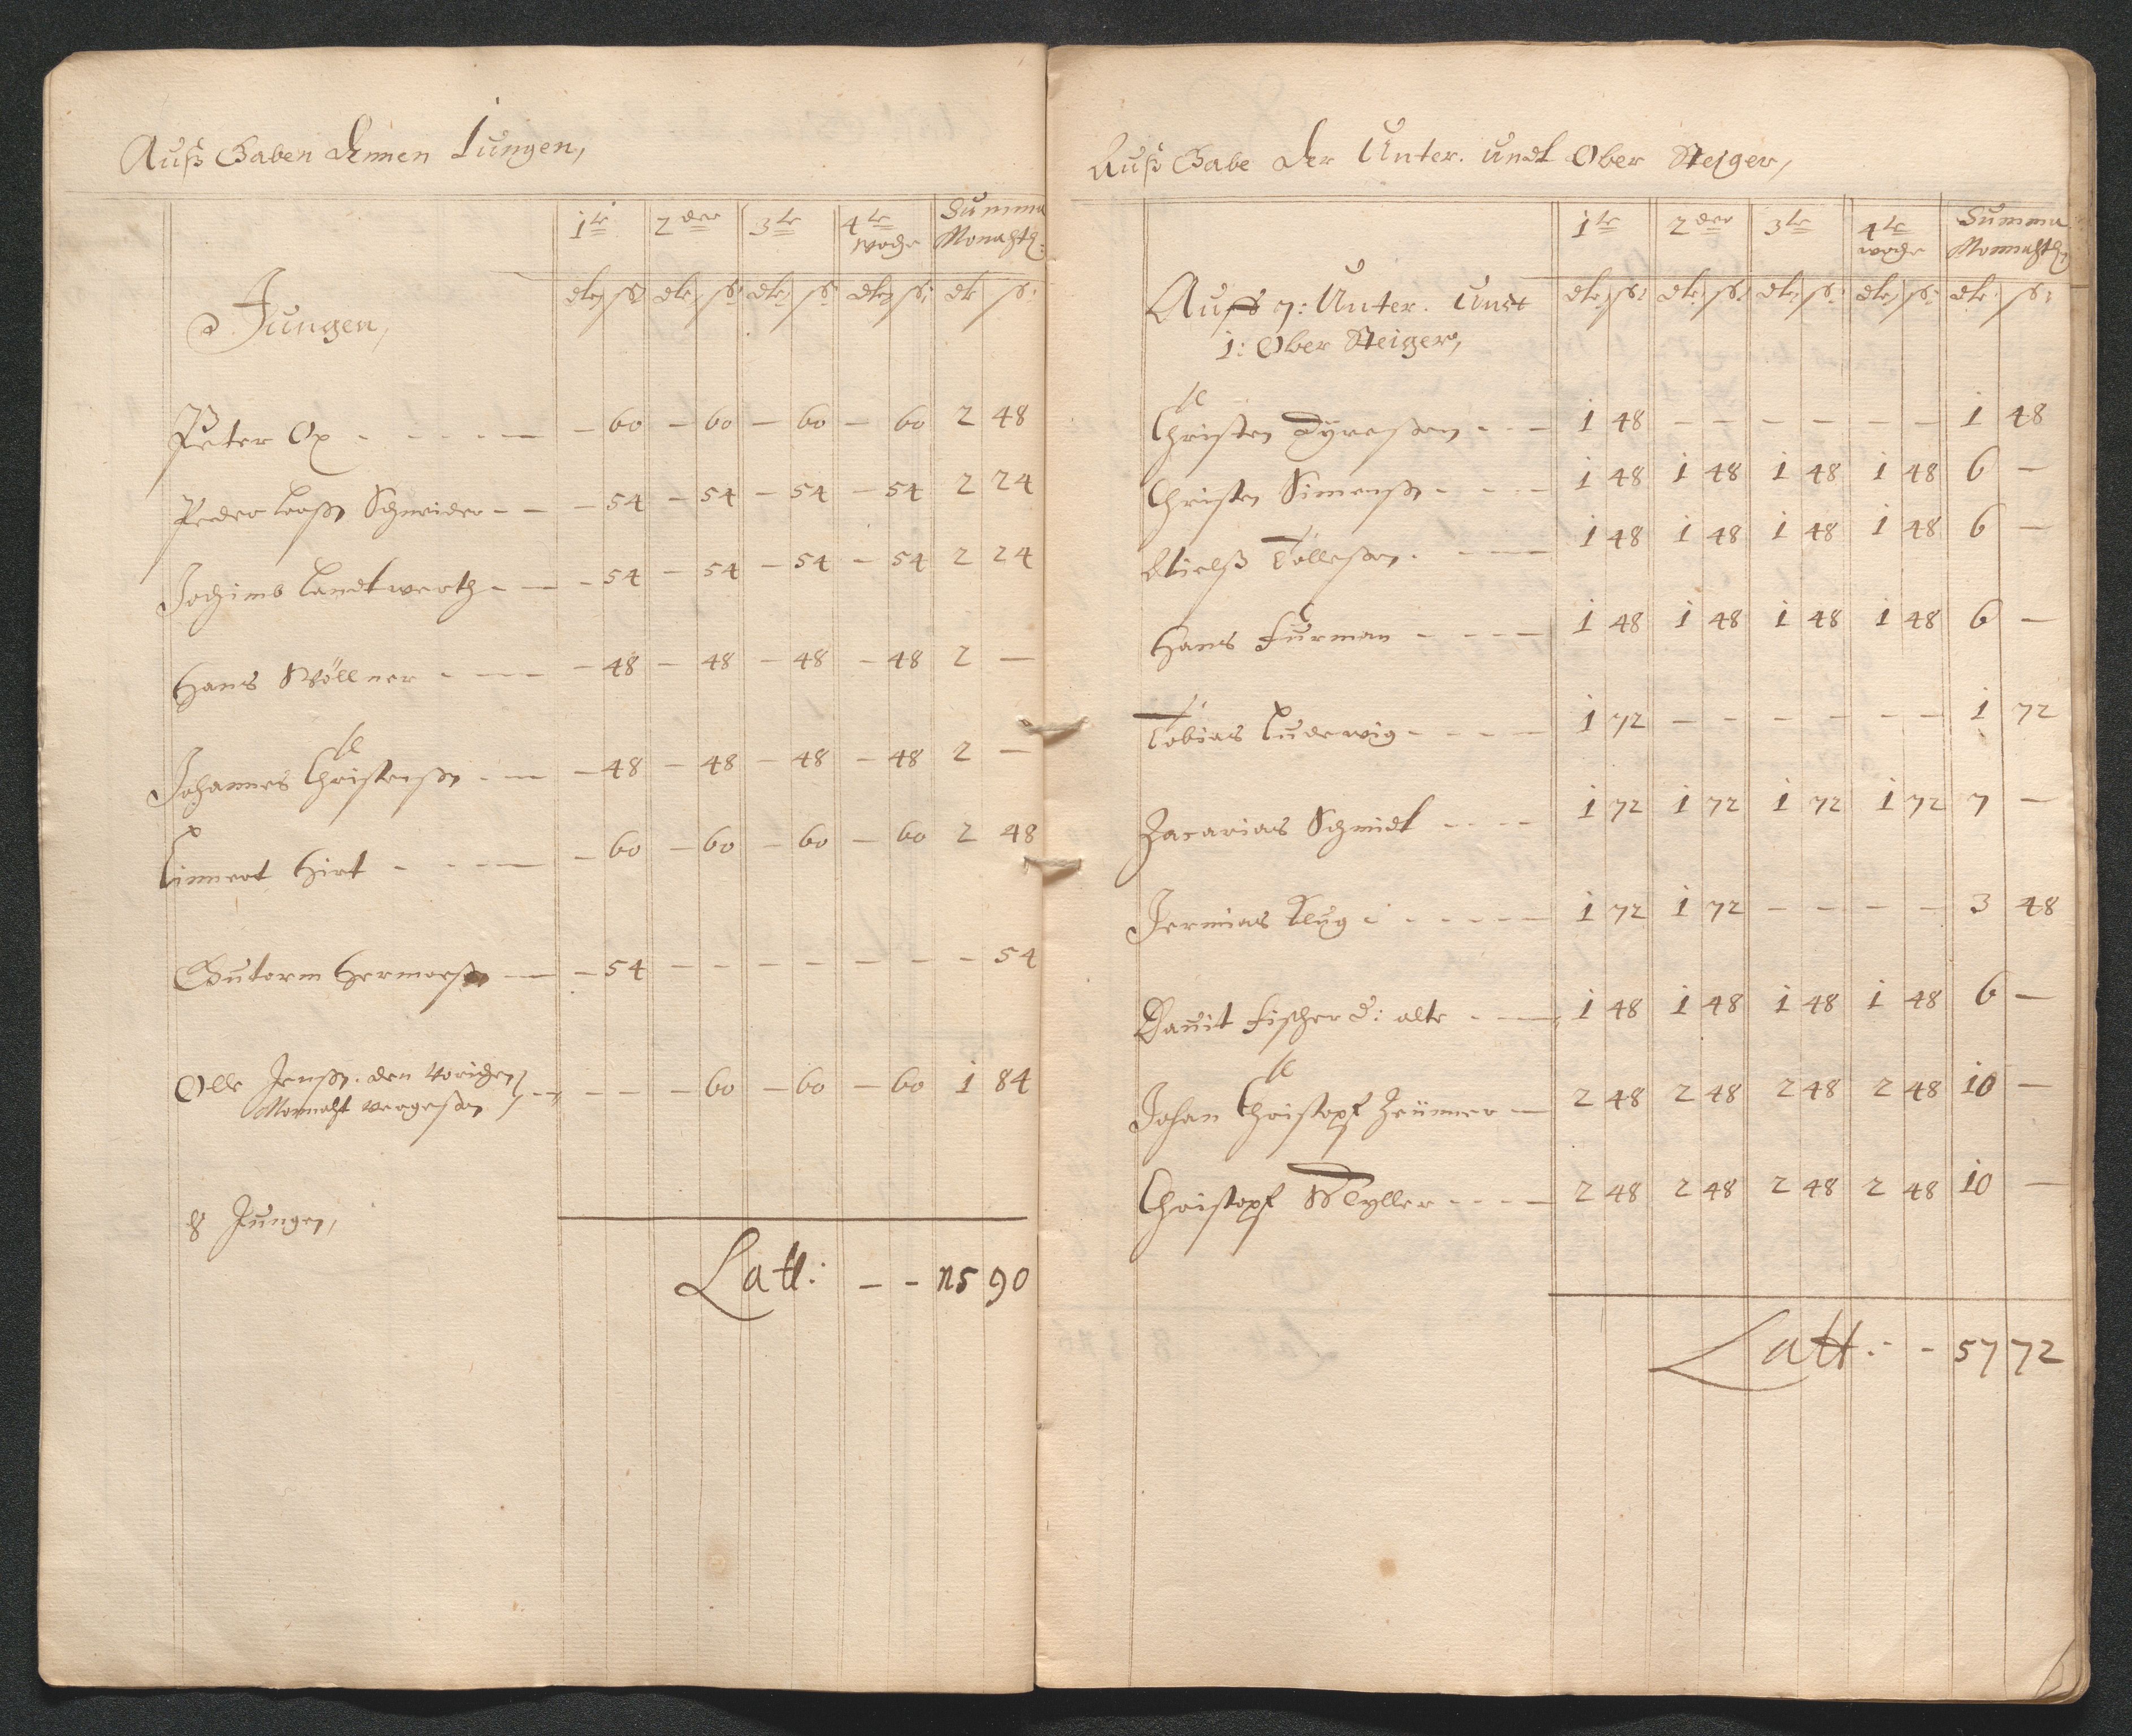 Auß Gaben denen Jungen,
1te 2der 3te 4te woche Summa Monahtl:
dlr ß dlr ß dlr ß dlr ß dlr ß
Jungen,
Peter Ox - - - - - 60 - 60 - 60 - 60 2 48
Peder Larß Schneider - - - 54 - 54 - 54 - 54 2 24
Jochimb Landtwerth - - - 54 - 54 - 54 - 54 2 24
Hans Wöllner - - - - 48 - 48 - 48 - 48 2 -
Johannes Christenß - - - 48 - 48 - 48 - 48 2 -
Linnert Hirt - - - - - 60 - 60 - 60 - 60 2 48
Gutorm Hermoeß - - 54 - - - - - - - 54
Olle Jenß. den Vorigen
Monaht vergeßen - - - - - 60 - 60 - 60 1 84
8 Jungen,
Latt: - - 15 90
Auß Gabe der Unter. undt Ober Steiger,
1te 2der 3te 4te woche Summa Monnahtl:
dlr ß dlr ß dlr ß dlr ß dlr ß
Auff 7: Unter. Undt
1: Ober Steiger,
Christen Dyreßen - - - 1 48 - - - - - - 1 48
Christen Simenß - - - 1 48 1 48 1 48 1 48 6 -
Nielß Tolleßen - - - 1 48 1 48 1 48 1 48 6 -
Hans Furman - - - - 1 48 1 48 1 48 1 48 6 -
Tobias Ludewig - - - - 1 72 - - - - - - 1 72
Zacarias Schmidt - - - - 1 72 1 72 1 72 1 72 7 -
Jermias Klug - - - - - - 1 72 1 72 - - - - 3 48
Davit Fischer d: alte - - - 1 48 1 48 1 48 1 48 6 -
Johan Christopf Zeünner - 2 48 2 48 2 48 2 48 10 -
Christopf Mÿller - - - - 2 48 2 48 2 48 2 48 10 -
Latt: - - 57 72